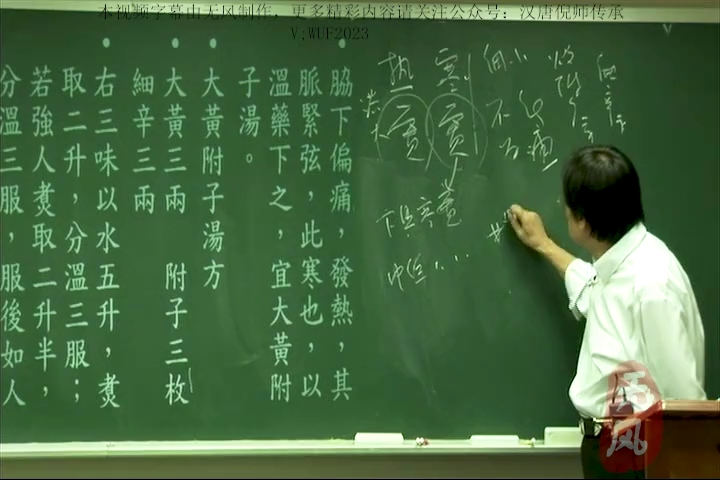 本视频字幕由无风制作，更多精彩内容请关注公众号：汉唐倪师传承
V;WUF2023
脇下偏痛，發熱，其
脈緊弦，此寒也，以
溫藥下之，宜大黃附
子湯。
大黃附子湯方
大黃三兩　附子三枚
細辛三兩
右三味以水五升，煑
取二升，分溫三服；
若強人煑取二升半，
分溫三服，服後如人
热
寒
下焦寒
中焦
无风